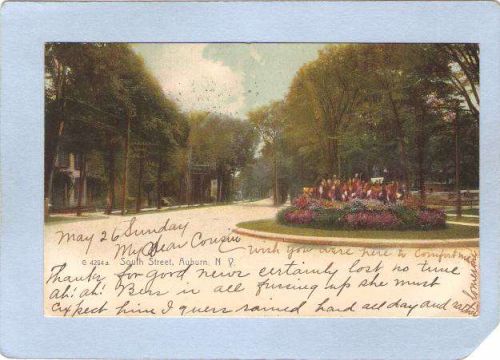 May 26 Sunday
My Dear Cousin wish you were here to comfort me
G 4294a South Street, Auburn, N. Y.
Thanks for good news certainly lost no time
Ah! Ah! Bess is all fussing up she must
expect him I guess rained hard all day and rather
lonesome